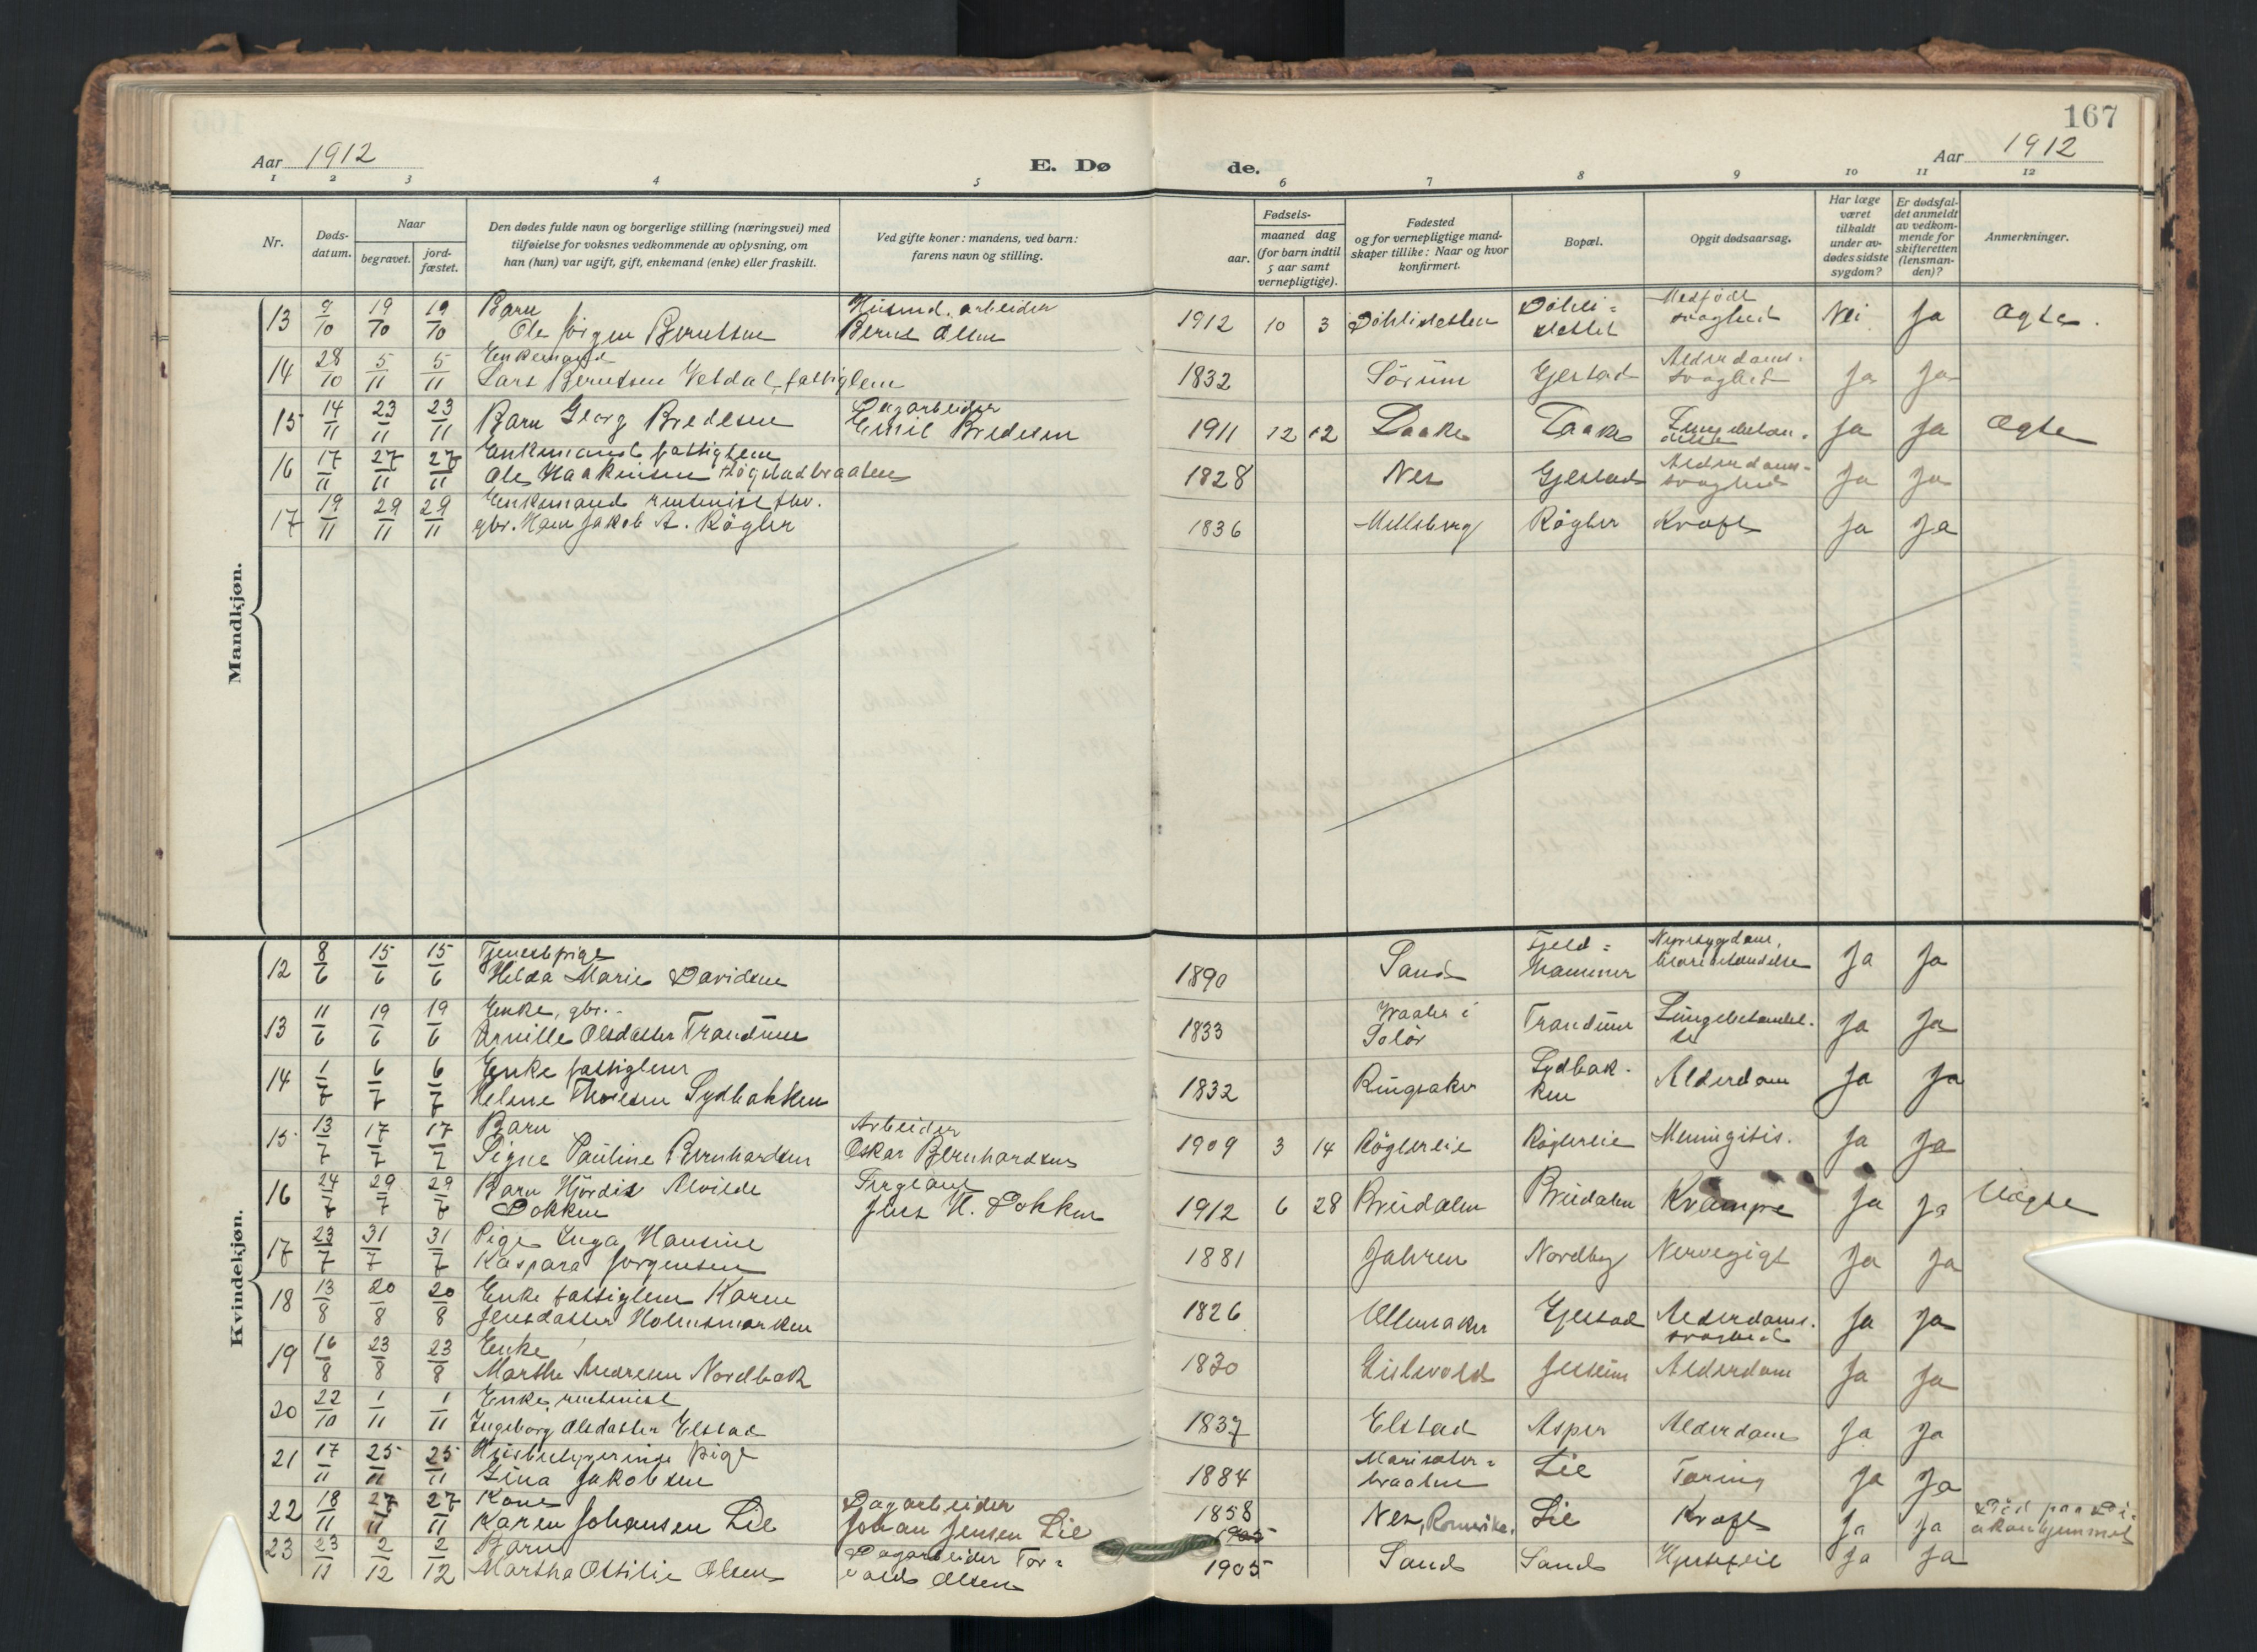 167
Aar 1912
E. Dø
de.
Aar 1912
1 2 3 4 5 6 7 8 9 10 11 12
Nr.
Døds-
datum.
Naar
begravet.
jord-
fæstet.
Den dødes fulde navn og borgerlige stilling (næringsvei) med
tilføielse for voksnes vedkommende av oplysning, om
han (hun) var ugift, gift, enkemand (enke) eller fraskilt.
Ved gifte koner: mandens, ved barn:
farens navn og stilling.
Fødsels-
aar.
maaned dag
(for barn indtil
5 aar samt
vernepligtige).
Fødested
og for vernepligtige mand-
skaper tillike: Naar og hvor
konfirmert.
Bopæl.
Opgit dødsaarsag.
Har læge
været
tilkaldt
under av-
dødes sidste
sygdom?
Er dødsfal-
det anmeldt
av vedkom-
mende for
skifteretten
(lensman-
den)?
Anmerkninger.
Mandkjøn.
13 9/10 19/10 19/10 Barn
Ole Jörgen Berntsen
Husmd. arbeider
Bernt Olsen
1912 10 3 Döhlisletten
Döhli=
sletten
Medfödt
svaghed
Nei Ja Ægte.
14 28/10 5/11 5/11 Enkemand
Lars Berntsen Veldal, fattiglem
1832 Sörum Gjestad
Alderdoms-
svaghed
Ja Ja
15 14/11 23/11 23/11 Barn Georg Bredesen
Dagarbeider
Emil Bredesen
1911 12 12 Laake Laake
Lungebetæn-
delse
Ja Ja Ægte
16 17/11 27/11 27/11 Enkemand fattiglem
Ole Haakensen Högstadbraaten
1828 Nes Gjestad
Alderdoms-
svaghed
Ja Ja
17 19/11 29/11 29/11 Enkemand rentenist fhv.
gbr. Hans Jakob A. Rögler
1836 Rögler Kræft Ja Ja
Kvindekjøn.
12 8/6 15/6 15/6 Tjenestpige
Helda Marie Davidsen
1890 Sand
Fjeld=
hammer
Nyresygdom,
Ja Ja
13 11/6 19/6 19/6 Enke, gbr.
Olsdatter Trandum
1833
Vaaler i
Solör
Trandum
Lungebetændel-
se
Ja Ja
14 1/7 6/7 6/7 Enke fattiglem
Helene Thoresen Sydbakken
1832 Ringsaker
Sydbak-
ken
Alderdom Ja Ja
15 13/7 17/7 17/7 Barn
Signe Pauline Bernhardsen
Arbeider
Oskar Bernhardsen
1909 3 14 Röglereie Röglereie Meningitis. Ja Ja
16 24/7 29/7 29/7 Barn Hjördis Alvilde
Dokken
Sergeant
Jens H. Dokken
1912 6 28 Brudalen Brudalen Krampe Ja Ja Uægte
17 23/7 31/7 31/7 Pige Inga Hansine
Kaspara Jörgensen
1881 Jahren Nordby Nervegigt Ja Ja
18 13/8 20/8 20/8 Enke fattiglem Karen
Jensdatter Holmsmarken
1826 Ullensaker Gjestad
Alderdoms-
svaghed
Ja Ja
19 16/8 23/8 23/8 Enke
Marthe Andresen Nordbak
1830 Jessheim Alderdom Ja Ja
20 22/10 1/11 1/11 Enke, rentenist
Ingeborg Olsdatter Elstad
1837 Elstad Asper Alderdom Ja Ja
21 17/11 25/11 25/11 Husbestyrerinde pige
Gina Jakobsen
1884
braaten
Lie Tæring Ja Ja
22 18/11 27/11 27/11 Kone
Karen Johansen Lie
Dagarbeider
Johan Jensen Lie
1858 Nes, Romerike. Lie Kræft Ja Ja
Död paa Di-
akonhjemmet
1905
23 23/11 2/12 2/12 Barn
Martha Ottilie Olsen
Dagarbeider Tor=
vald Olsen
1905 Sand Sand Hjertefeil Ja Ja